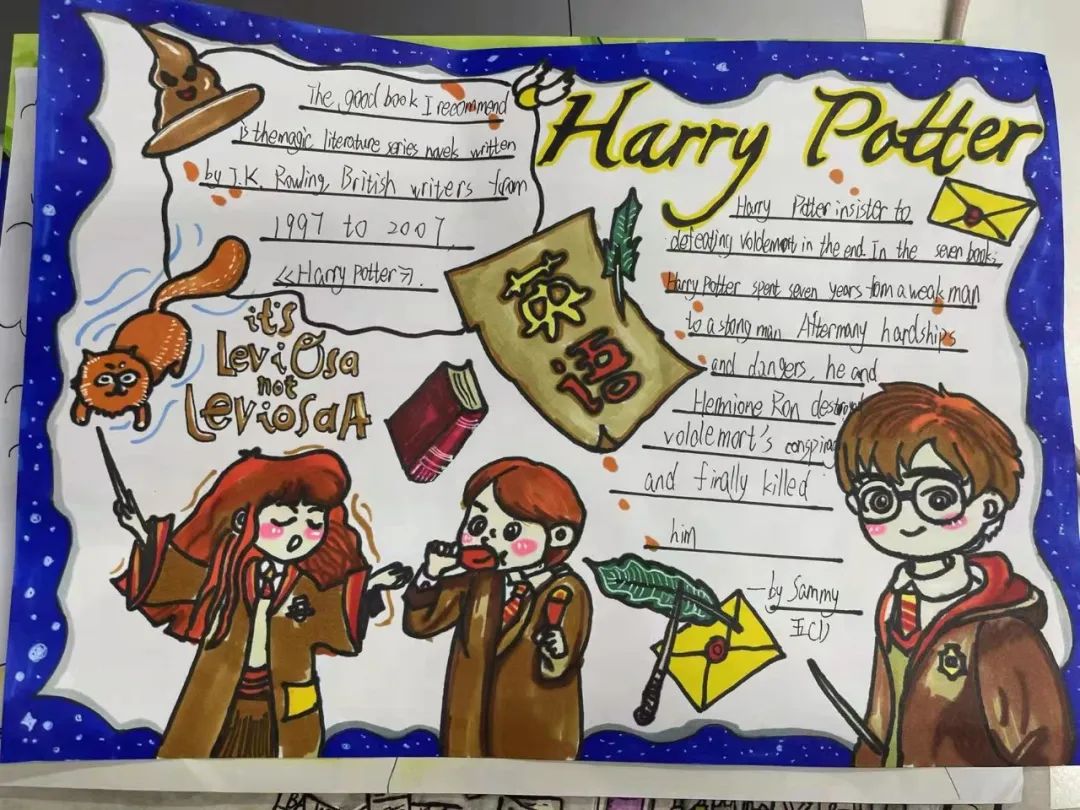 The good book I recommend
is themagic literature series novels written
by J.K. Rowling, British writers from
1997 to 2007.
《Harry Potter》.
it's
LeviOsa
not
LeviosaA
英
语
Harry Potter
Harry Potter insister to
defeating Voldemort in the end. In the seven books,
Harry Potter spent seven years from a weak man
to a stong man Aftermany hardships
and dangers, he and
Hermione Ron
voldemort's
and finally killed
him
—by Sammy
五(1)